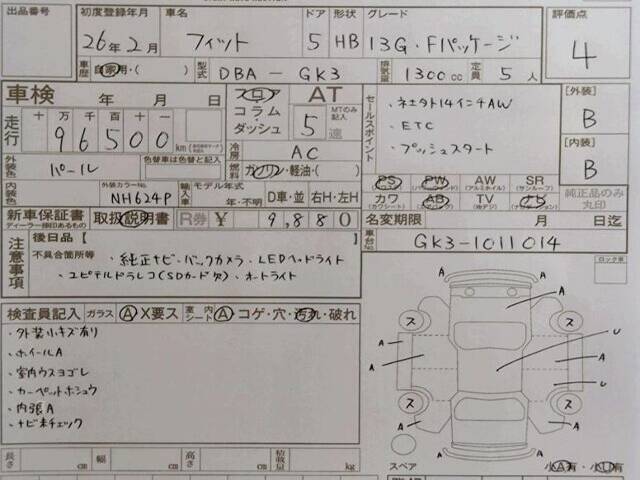 出品番号 初度登録年月 車名 ドア 形状 グレード 評価点
26年2月 フィット 5 HB 13G・Fパッケージ 4
車歴 自家用・( ) 型式 DBA-GK3 排気量 1300cc 定員 5人
車検 年 月 日 フロア コラム・ダッシュ AT 5速 MTのみ記入
走行 十万千百十 96500km
セールスポイント
・ネオタト14インチAW
・ETC
・プッシュスタート
[外装] B
[内装] B
冷房 AC
外装色 パール 色替車は色替と記入 燃料 ガソリン・軽油・( )
PS PW AW SR
(アルミホイル) (サンルーフ)
カワ AB TV ナビ
(カワシート) (エアバッグ) (地デジ) (ナビゲーション)
純正品のみ丸印
内装色 外装カラーNo. NH624P 輸入車 モデル年式 年・不明 D車・並 右H・左H
新車保証書 取扱説明書 R券 ¥ 9,880 名変期限 月 日迄
ディーラー捺印あるもの
注意事項 後日品【
不具合箇所等
・純正ナビ・バックカメラ・LEDヘッドライト
・ユピテルドラレコ(SDカード欠)・オートライト
車台No. GK3-1011014
ロック車
検査員記入 ガラス A X要ス 室内シート A コゲ・穴・汚れ・破れ
・外装小キズ有り
・ホイールA
・室内ウスヨゴレ
・カーペットホシュウ
・内張A
・ナビ未チェック
A A
ス ス
A U
A A
U
ス ス
A A
長さ cm 幅 cm 高さ cm 積載量 kg
スペア 小A有・小U有